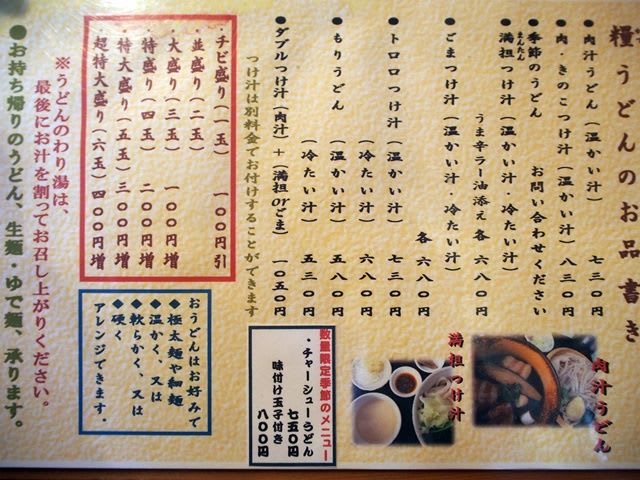 糧うどんのお品書き
●肉汁うどん（温かい汁） 七三〇円
●肉・きのこつけ汁（温かい汁） 八三〇円
●季節のうどん お問い合わせください
まんたん
●満担つけ汁（温かい汁・冷たい汁）
うま辛ラー油添え 各六八〇円
●ごまつけ汁（温かい汁・冷たい汁）
各六八〇円
●トロロつけ汁（温かい汁） 七三〇円
（冷たい汁） 六八〇円
●もりうどん （温かい汁） 五八〇円
（冷たい汁） 五三〇円
●ダブルつけ汁（肉汁）＋（満担orごま） 一〇五〇円
つけ汁は別料金でお付けすることができます
・チビ盛り（一玉） 一〇〇円引
・並盛り（二玉）
・大盛り（三玉） 一〇〇円増
・特盛り（四玉） 二〇〇円増
・特大盛り（五玉） 三〇〇円増
・超特大盛り（六玉） 四〇〇円増
※うどんのわり湯は、
最後にお汁を割ってお召し上がりください。
●お持ち帰りのうどん、生麺・ゆで麺、承ります。
おうどんはお好みで
◆極太麺や細麺
◆温かく、又は
◆軟らかく、又は
◆硬く
アレンジできます。
数量限定季節のメニュー
・チャーシューうどん
七五〇円
味付け玉子付き
八〇〇円
満担つけ汁
肉汁うどん